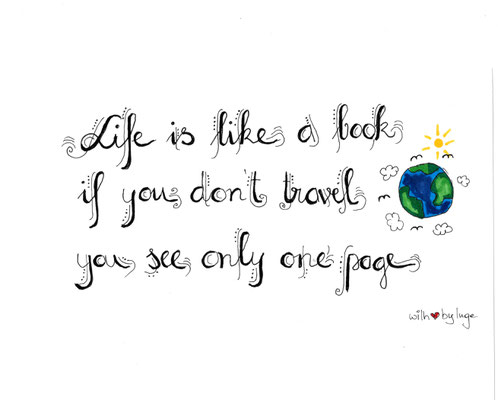 Life is like a book
if you don't travel
you see only one page
with ❤ by Inge